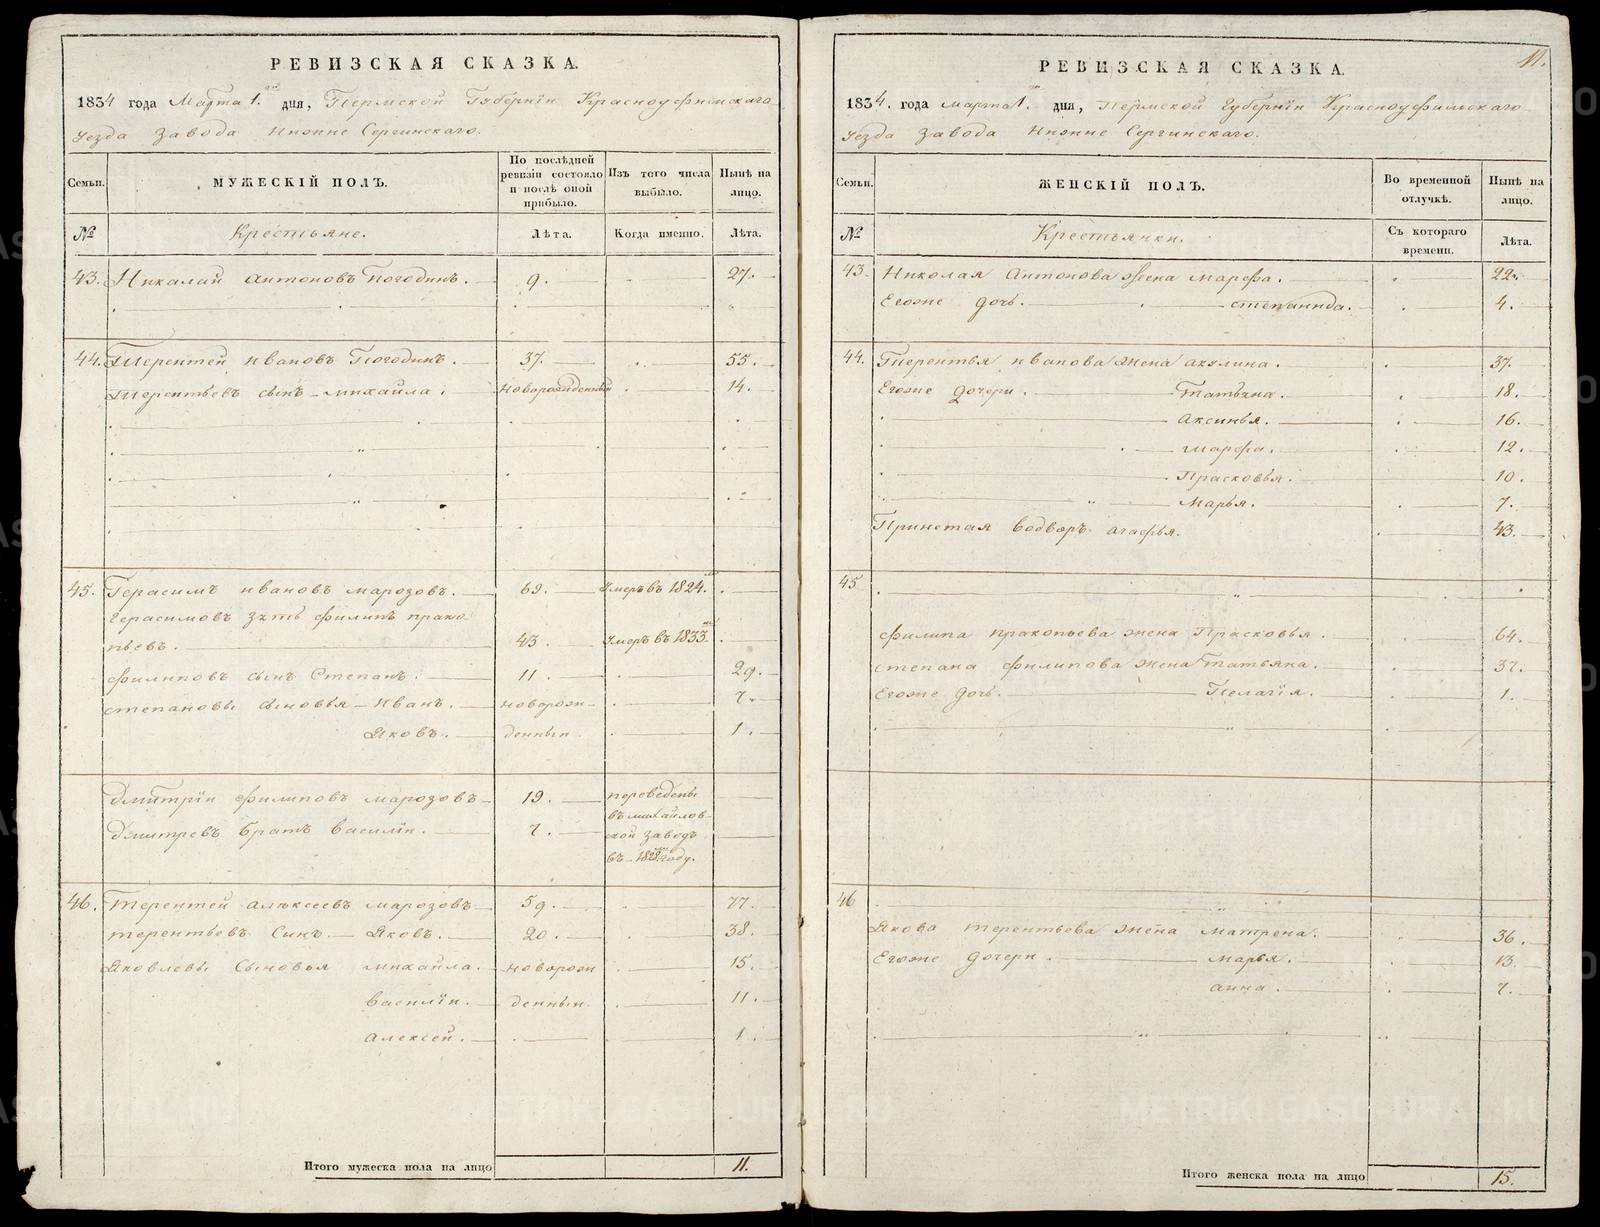 РЕВИЗСКАЯ СКАЗКА.
1834 года Марта 1. дня, Пермской Губернїи Красноуфимскаго
Уезда Завода Нижне Сергинскаго.
Семьи. МУЖЕСКІЙ ПОЛЪ. По послѣдней ревизіи состояло и послѣ оной прибыло. Изъ того числа выбыло. Нынѣ на лицо.
№ Крестьяне. Лѣта. Когда именно. Лѣта.
43. Николай Антоновъ Погодинъ. 9. 27.
44. Терентей ивановъ Погодинъ. 37. 55.
Терентьевъ сынъ михайла. новорожденный 14.
45. Герасимъ ивановъ марозовъ. 69. Умеръ въ 1824.
Герасимовъ зять филипъ прако
пьевъ. 43. Умеръ въ 1833.
филиповъ сынъ Степанъ. 11. 29.
степановы сыновья Иванъ. новорож 7.
Яковъ. денныи 1.
Дмитрїи филиповъ марозовъ 19. переведены
въ михайлов
Дмитревъ братъ василїи. 7. ской заводъ
въ 1828 году.
46. Терентей алексеевъ марозовъ 59. 77.
терентьевъ Сынъ Яковъ. 20. 38.
Яковлевы Сыновья михайла. новорож 15.
василїи. денныи. 11.
алексей. 1.
Итого мужеска пола на лицо 11.
11.
РЕВИЗСКАЯ СКАЗКА.
1834. года марта 1. дня, Пермской Губернїи Красноуфимскаго
Уезда Завода Нижне Сергинскаго.
Семьи. ЖЕНСКІЙ ПОЛЪ. Во временной отлучкѣ. Нынѣ на лицо.
№ Крестьянки. Съ котораго времени. Лѣта.
43. Николая Антонова жена марфа. 22.
Егоже дочь. степанида. 4.
44. Терентья иванова жена акулина. 37.
Егоже дочери. Татьяна. 18.
Аксинья. 16.
марфа. 12.
Прасковья. 10.
Марья. 7.
Принетая водворъ агафья. 43.
45
филипа пракопьева жена Прасковья. 64.
степана филипова жена Татьяна. 37.
Егоже дочь. Пелагїя. 1.
46
Якова терентьева жена матрена. 36.
Егоже дочери. марья. 13.
анна. 7.
Итого женска пола на лицо 15.
METRIKI.GASO-URAL.RU